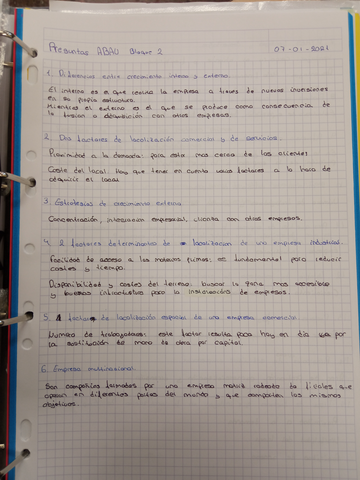 Preguntas ABAU Bloque 2
07-01-2021
1. Diferencias entre crecimiento interno y externo.
El interno es el que realiza la empresa a traves de nuevas inversiones
en su propia estructura.
Mientras el externo es el que se produce como consecuencia de
la fusion o adquisicion con otras empresas.
2. Dos factores de localización comercian y de servicios.
Proximidad a la demanda: para estar mas cerca de los clientes
Coste del local: hay que tener en cuenta varios factores a la hora de
adquirir el local
3. Estrategias de crecimiento externo
Concentración, integración empresarial, alianza con otras empresas.
4. 2 factores determinantes de localizacion de una empresa industrial.
Facilidad de acceso a las materias primas, es fundamental para reducir
costes y tiempo.
Disponibilidad y costes del terreno: buscar la zona mas accesible
y buenas infraestructuras para la instalación de empresas.
5. 1 factor de localización espacial de una empresa
Numero de trabajadores: este factor resulta poco hoy en dia por
la sustitución de mano de obra por capital.
6. Empresa multinacional.
Son compañias formadas por una empresa matriz rodeada de filiales que
operan en diferentes partes del mundo y que comparten los mismos
objetivos.